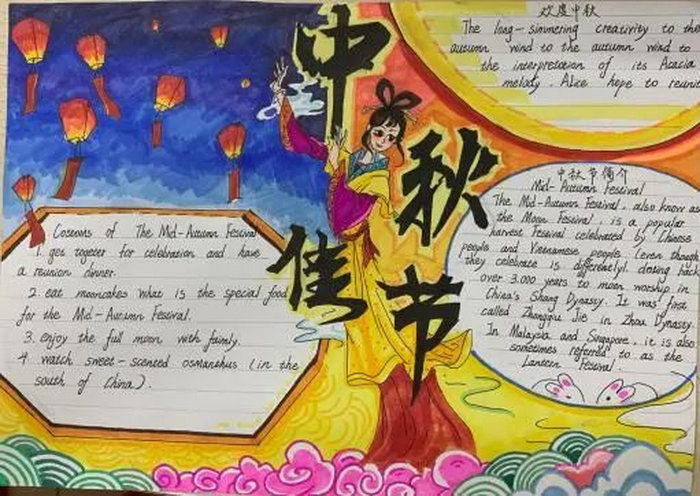 中
秋
佳
节
欢度中秋
The long-simmering creativity to the
autumn wind to the autumn wind to
the interpretation of its Acacia
melody. Alice hope to reunr
Costoons of The Mid-Autumn Festival
1. get togeter for celebration and have
a reunion dinner.
2. eat mooncakes what is the special food
for the Mid-Autumn Festival.
3. enjoy the full moon with faimly.
4. watch sweet-scented osmanthus (in the
south of China).
中秋节简介
Mid-Autumn Festival
The Mid-Autumn Festival, also know as
the Moon Festival, is a popular
harvest Festival celebrated by Chinese
people and Vietnamese people (even though
they celebrate is differently), dating back
over 3.000 years to moon worship in
China's Shang Dynasty. It was first
called Zhongqiu Jie in Zhou Dynasty.
In Malaysia and Singapore, it is also
sometimes referred to as the
Lantern Festival.